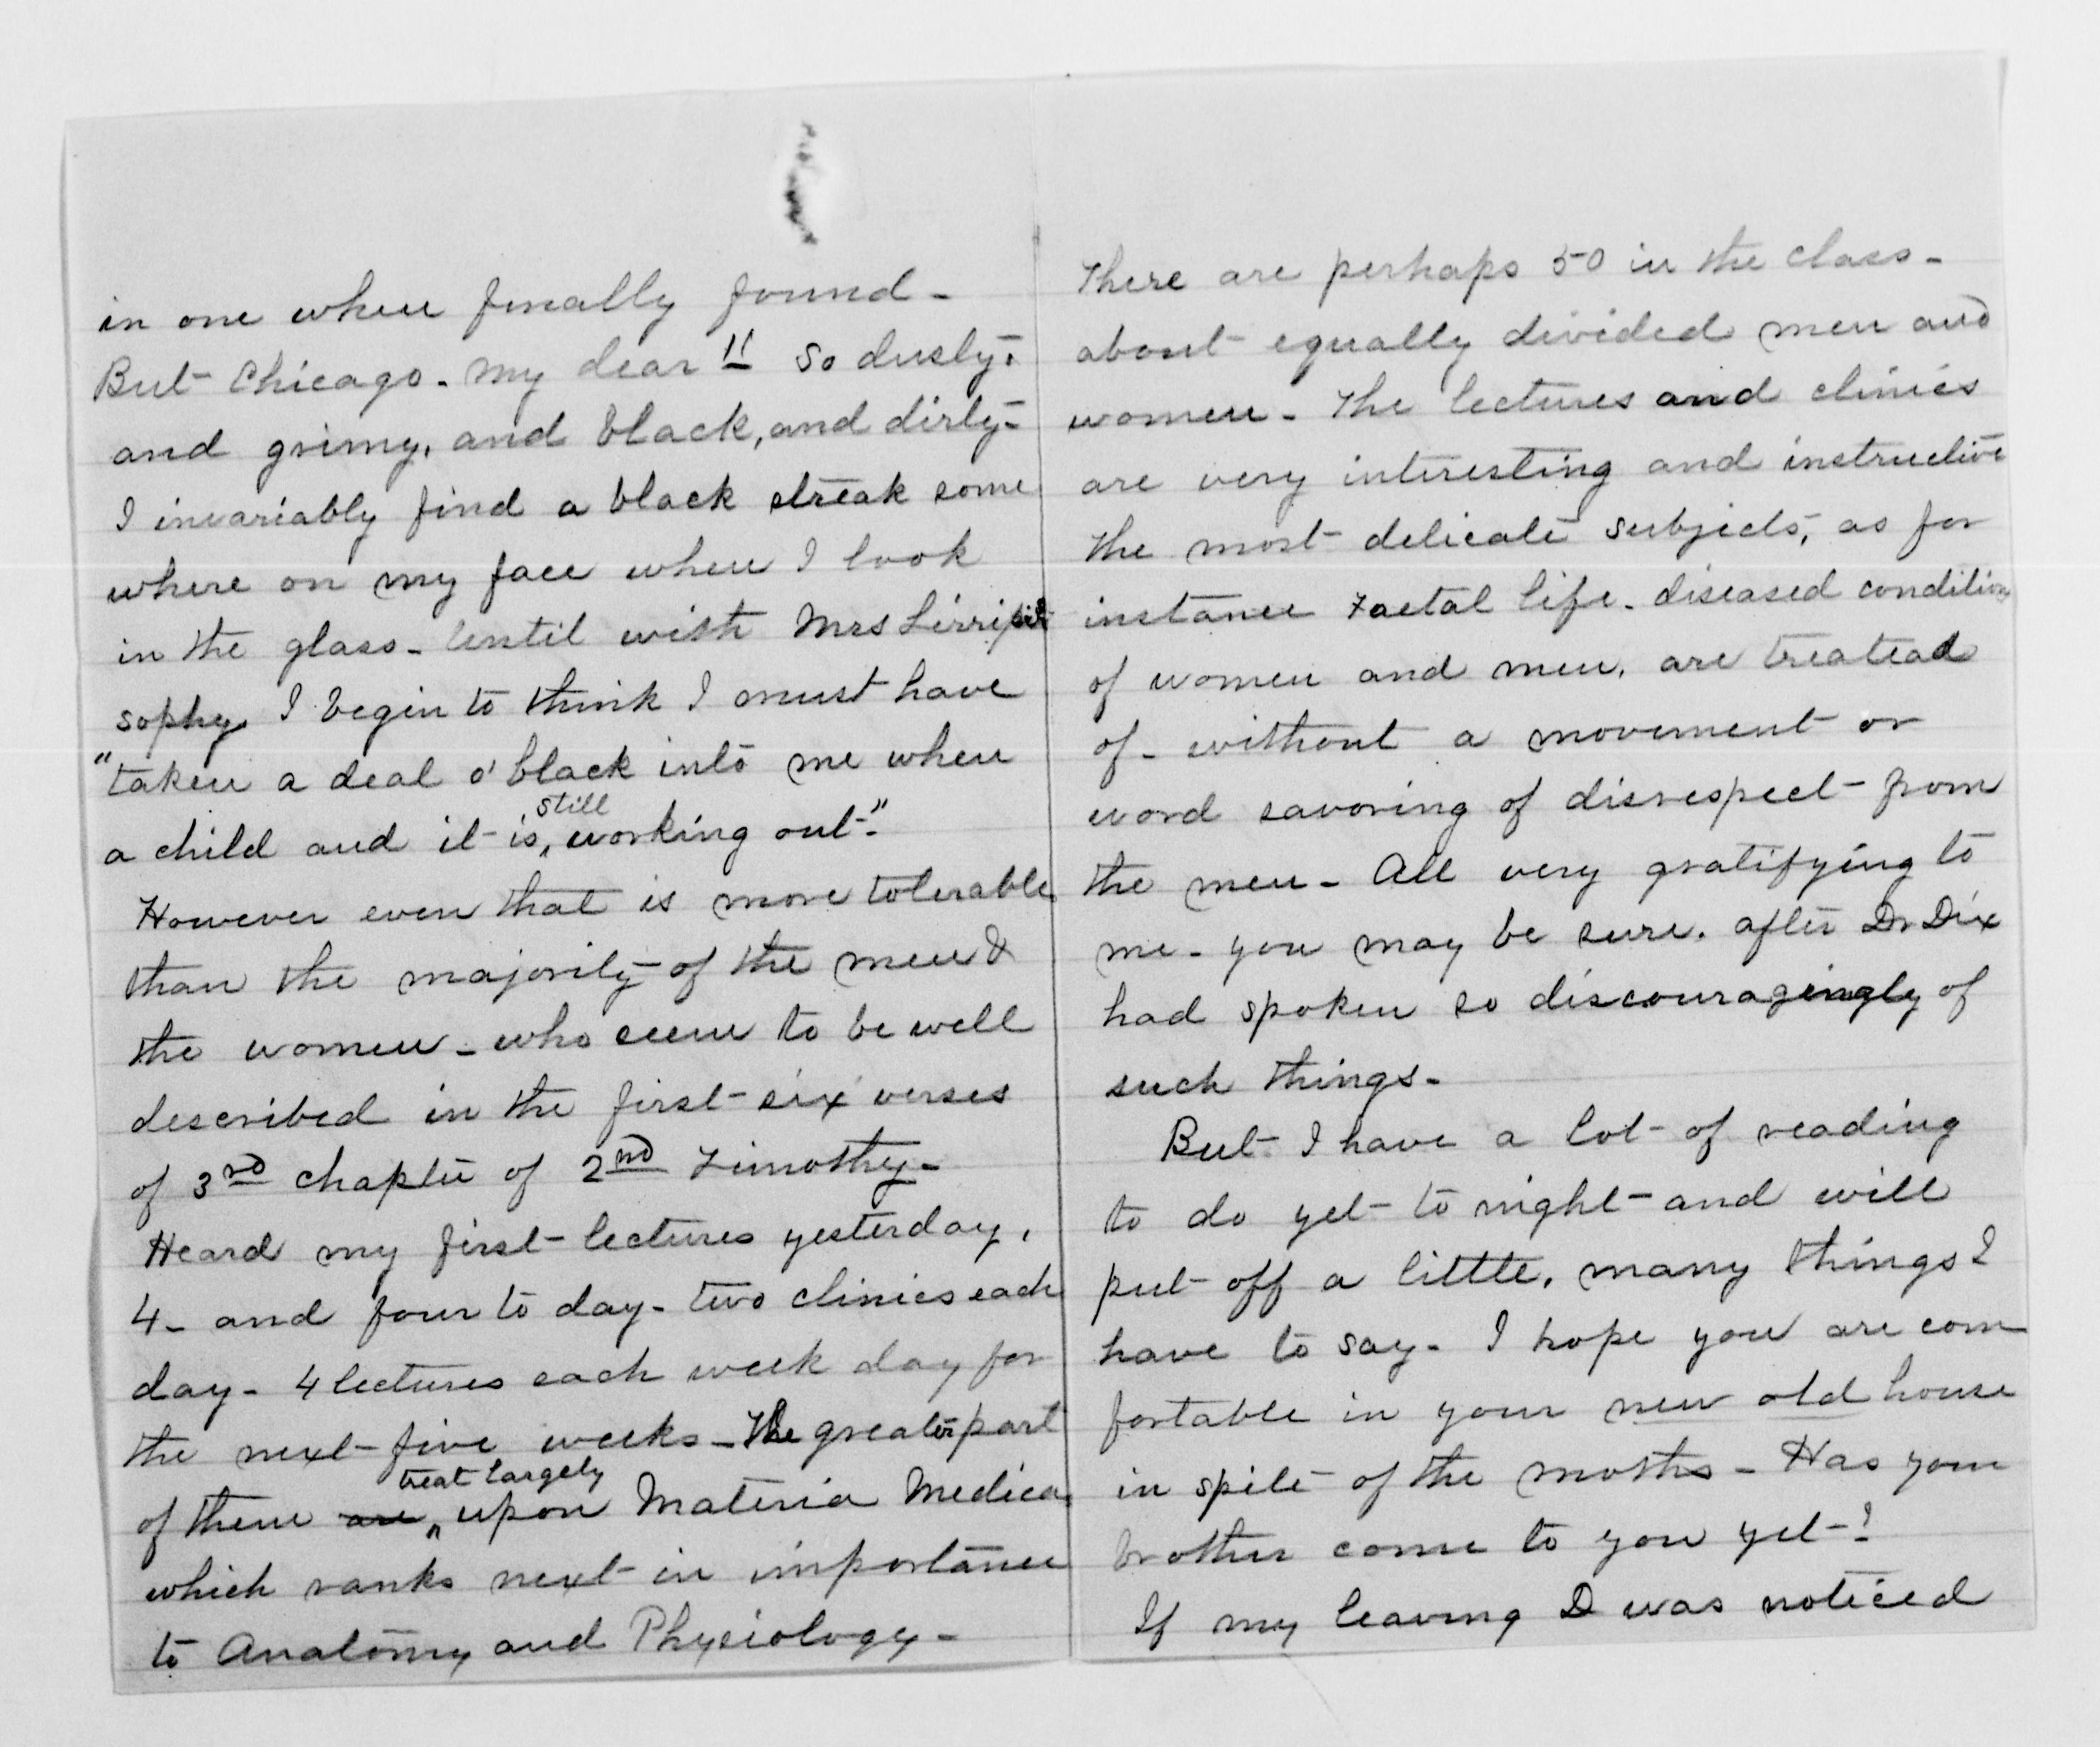 in one when finally found -
But Chicago - my dear !! so dusty.
and grimy, and black, and dirty -
I invariably find a black streak some
where on my face when I look
in the glass - Until with Mrs Lirriper's
sophy I begin to think I must have
"taken a deal o' black into me when
a child and it is still working out."
However even that is more tolerable
than the majority of the men &
the women - who seem to be well
described in the first six verses
of 3rd chapter of 2nd Timothy -
Heard my first lectures yesterday,
4 - and four to day - two clinics each
day - 4 lectures each week day for
the next five weeks - The greater part
of them are treat largely upon Materia Medica
which ranks next in importance
to Anatomy and Physiology -
There are perhaps 50 in the class -
about equally divided men and
women - The lectures and clinics
are very interesting and instructive
the most delicate subjects, as for
instance Faetal life - diseased conditions
of women and men, are treatead
of - without a movement or
word savoring of disrespect from
the men - All very gratifying to
me - you may be sure. after Dr Dix
had spoken so discouragingly of
such things -
But I have a lot of reading
to do yet to night and will
put off a little, many things I
have to say - I hope you are com
fortable in your new old house
in spite of the moths - Has your
brother come to you yet?
If my leaving D was noticed